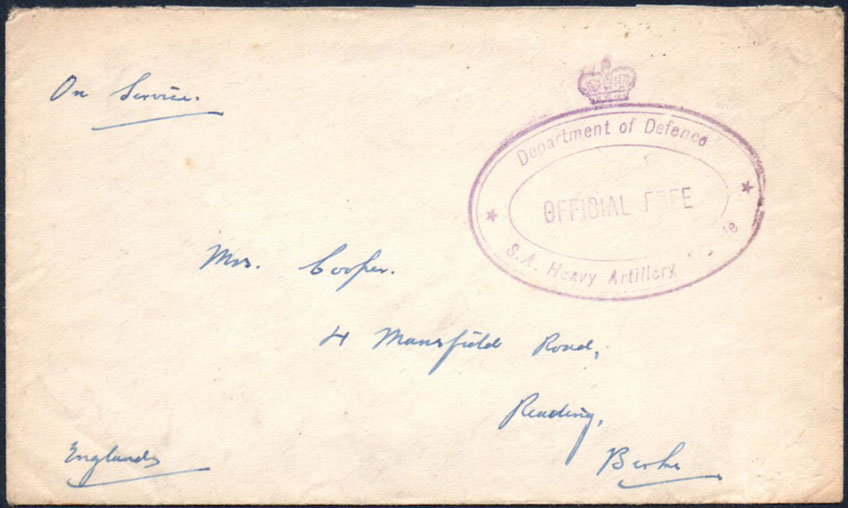 On Service.
Department of Defence
OFFICIAL FREE
S.A. Heavy Artillery
Mrs. Cooper.
4 Mansfield Road,
Reading,
Berks
England